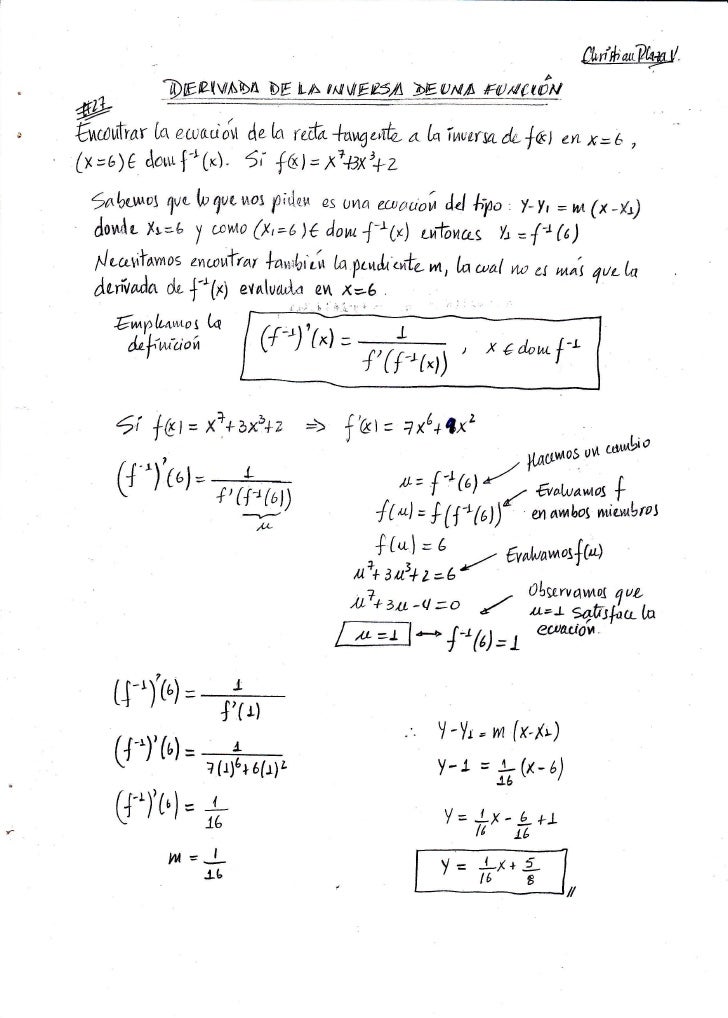 Christian Plaza V.
DERIVADA DE LA INVERSA DE UNA FUNCIÓN
#27
Encontrar la ecuación de la recta tangente a la inversa de f(x) en x=6,
(x=6)∈ dom f⁻¹(x). Si f(x) = x⁷+3x³+2
Sabemos que lo que nos piden es una ecuación del tipo: y-y₁ = m (x-x₁)
donde x₁=6 y como (x₁=6)∈ dom f⁻¹(x) entonces y₁ = f⁻¹(6)
Necesitamos encontrar también la pendiente m, la cual no es más que la
derivada de f⁻¹(x) evaluada en x=6.
Empleamos la
definición
(f⁻¹)'(x) = 1/f'(f⁻¹(x)) , x ∈ dom f⁻¹
Si f(x) = x⁷+3x³+2 ⇒ f'(x) = 7x⁶+9x²
(f⁻¹)'(6) = 1/f'(f⁻¹(6))
u
u = f⁻¹(6)
Hacemos un cambio
f(u) = f(f⁻¹(6))
Evaluamos f
en ambos miembros
f(u) = 6
u⁷+3u³+2=6
Evaluamos f(u)
u⁷+3u-4=0
Observamos que
u=1 satisface la
ecuación.
u=1 ↔ f⁻¹(6)=1
(f⁻¹)'(6) = 1/f'(1)
(f⁻¹)'(6) = 1/7(1)⁶+6(1)²
(f⁻¹)'(6) = 1/16
m = 1/16
∴ y-y₁ = m (x-x₁)
y-1 = 1/16 (x-6)
y = 1/16 x - 6/16 + 1
y = 1/16 x + 5/8 //